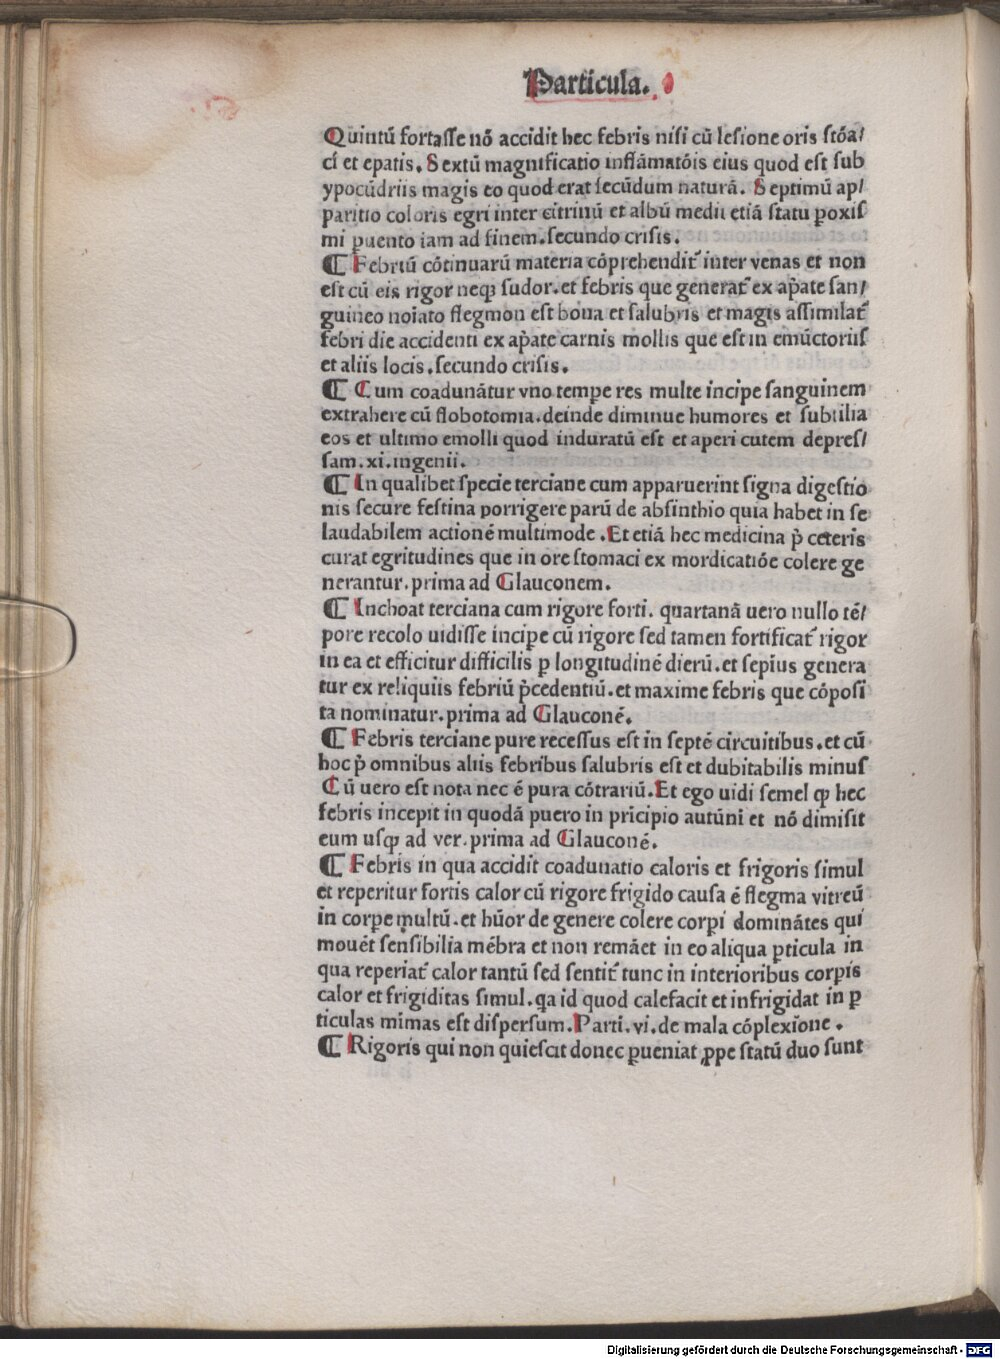 Particula.
Quintū fortasse nō accidit hec febris nisi cū lesione oris stōa/
ci et epatis. Sextū magnificatio inflāmatōis eius quod est sub
ypocūdriis magis eo quod erat secūdum naturā. Septimū ap/
paritio coloris egri inter citrinū et albū medii etiā statu ꝑoxis
mi ꝑuento iam ad finem. secundo crisis.
¶ Febriū cōtinuarū materia cōprehendit᷑ inter venas et non
est cū eis rigor neqꝫ sudor. et febris que generat᷑ ex ap̄ate san/
guineo noiato flegmon est bona et salubris et magis assimilat᷑
febri die accidenti ex ap̄ate carnis mollis que est in emūctoriis
et aliis locis. secundo crisis.
¶ Cum coadunātur vno tempe res multe incipe sanguinem
extrahere cū flobotomia. deinde diminue humores et subtilia
eos et ultimo emolli quod induratū est et aperi cutem depres/
sam. xi. ingenii.
¶ In qualibet specie terciane cum apparuerint signa digestio
nis secure festina porrigere parū de absinthio quia habet in se
laudabilem actionē multimode. Et etiā hec medicina p̄ ceteris
curat egritudines que in ore stomaci ex mordicatiōe colere ge
nerantur. prima ad Glauconem.
¶ Inchoat terciana cum rigore forti. quartanā uero nullo tē/
pore recolo uidisse incipe cū rigore sed tamen fortificat᷑ rigor
in ea et efficitur difficilis ꝑ longitudinē dierū. et sepius genera
tur ex reliquiis febriū p̄cedentiū. et maxime febris que cōposi
ta nominatur. prima ad Glauconē.
¶ Febris terciane pure recessus est in septē circuitibus. et cū
hoc p̄ omnibus aliis febribus salubris est et dubitabilis minus
Cū uero est nota nec ē pura cōtrariū. Et ego uidi semel ꝙ hec
febris incepit in quodā puero in pricipio autūni et nō dimisit
eum usqꝫ ad ver. prima ad Glauconē.
¶ Febris in qua accidit coadunatio caloris et frigoris simul
et reperitur fortis calor cū rigore frigido causa ē flegma vitreū
in corpe multū. et hūor de genere colere corpi dominātes qui
mouēt sensibilia mēbra et non remāet in eo aliqua ꝑticula in
qua reperiat᷑ calor tantū sed sentit᷑ tunc in interioribus corpis
calor et frigiditas simul. qa id quod calefacit et infrigidat in ꝑ
ticulas mimas est dispersum. Parti. vi. de mala cōplexione.
¶ Rigoris qui non quiescit donec ꝑueniat ꝓpe statū duo sunt
Digitalisierung gefördert durch die Deutsche Forschungsgemeinschaft - DFG